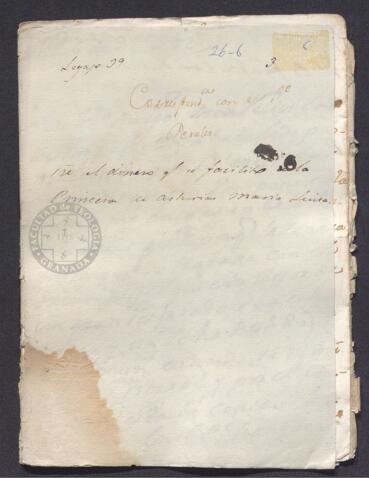 Legajo 39
26-6
3
6
Correspond.ª con el P.e
Perales
tre el dinero q.e se facilitó a la
Princesa de asturias Maria Luisa
FACULTAD DE TEOLOGÍA
GRANADA